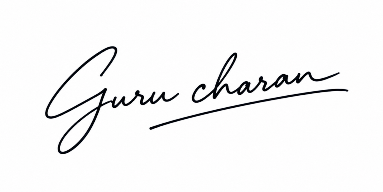 Guru charan